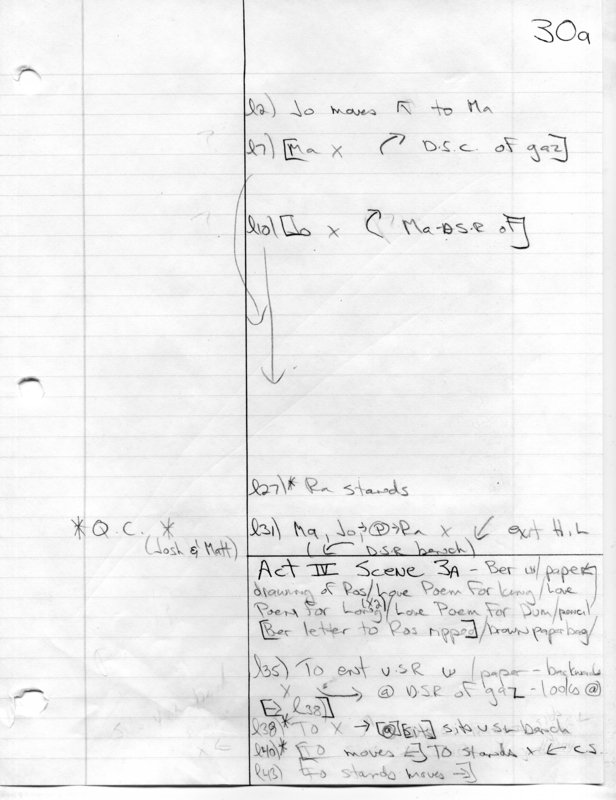 30a
l2) Jo moves ↖ to Ma
l7) [Ma x D.S.C. of gaz]
l10) [Jo x Ma-D.S.R of]
l27)* Ra stands
*Q.C.* l31) Ma, Jo → (P) → Ra x ↙ exit H.L
(Josh & Matt) (↙ DSR bench)
Act IV Scene 3A - Ber w/ paper
drawing of Ros/Love Poem For King/Love
Poem For Long(x2)/Love Poem For Dum/pencil
[Ber letter to Ros ripped]/brown paper bag/
l35) To ent USR w/paper - backwards
x → @ DSR of gaz - looks @
[→ l38]
l38)* To x → [@][sits] sits USL bench
l40)* [To moves ←] To stands x ← C.S.
l43) [To stands moves →]